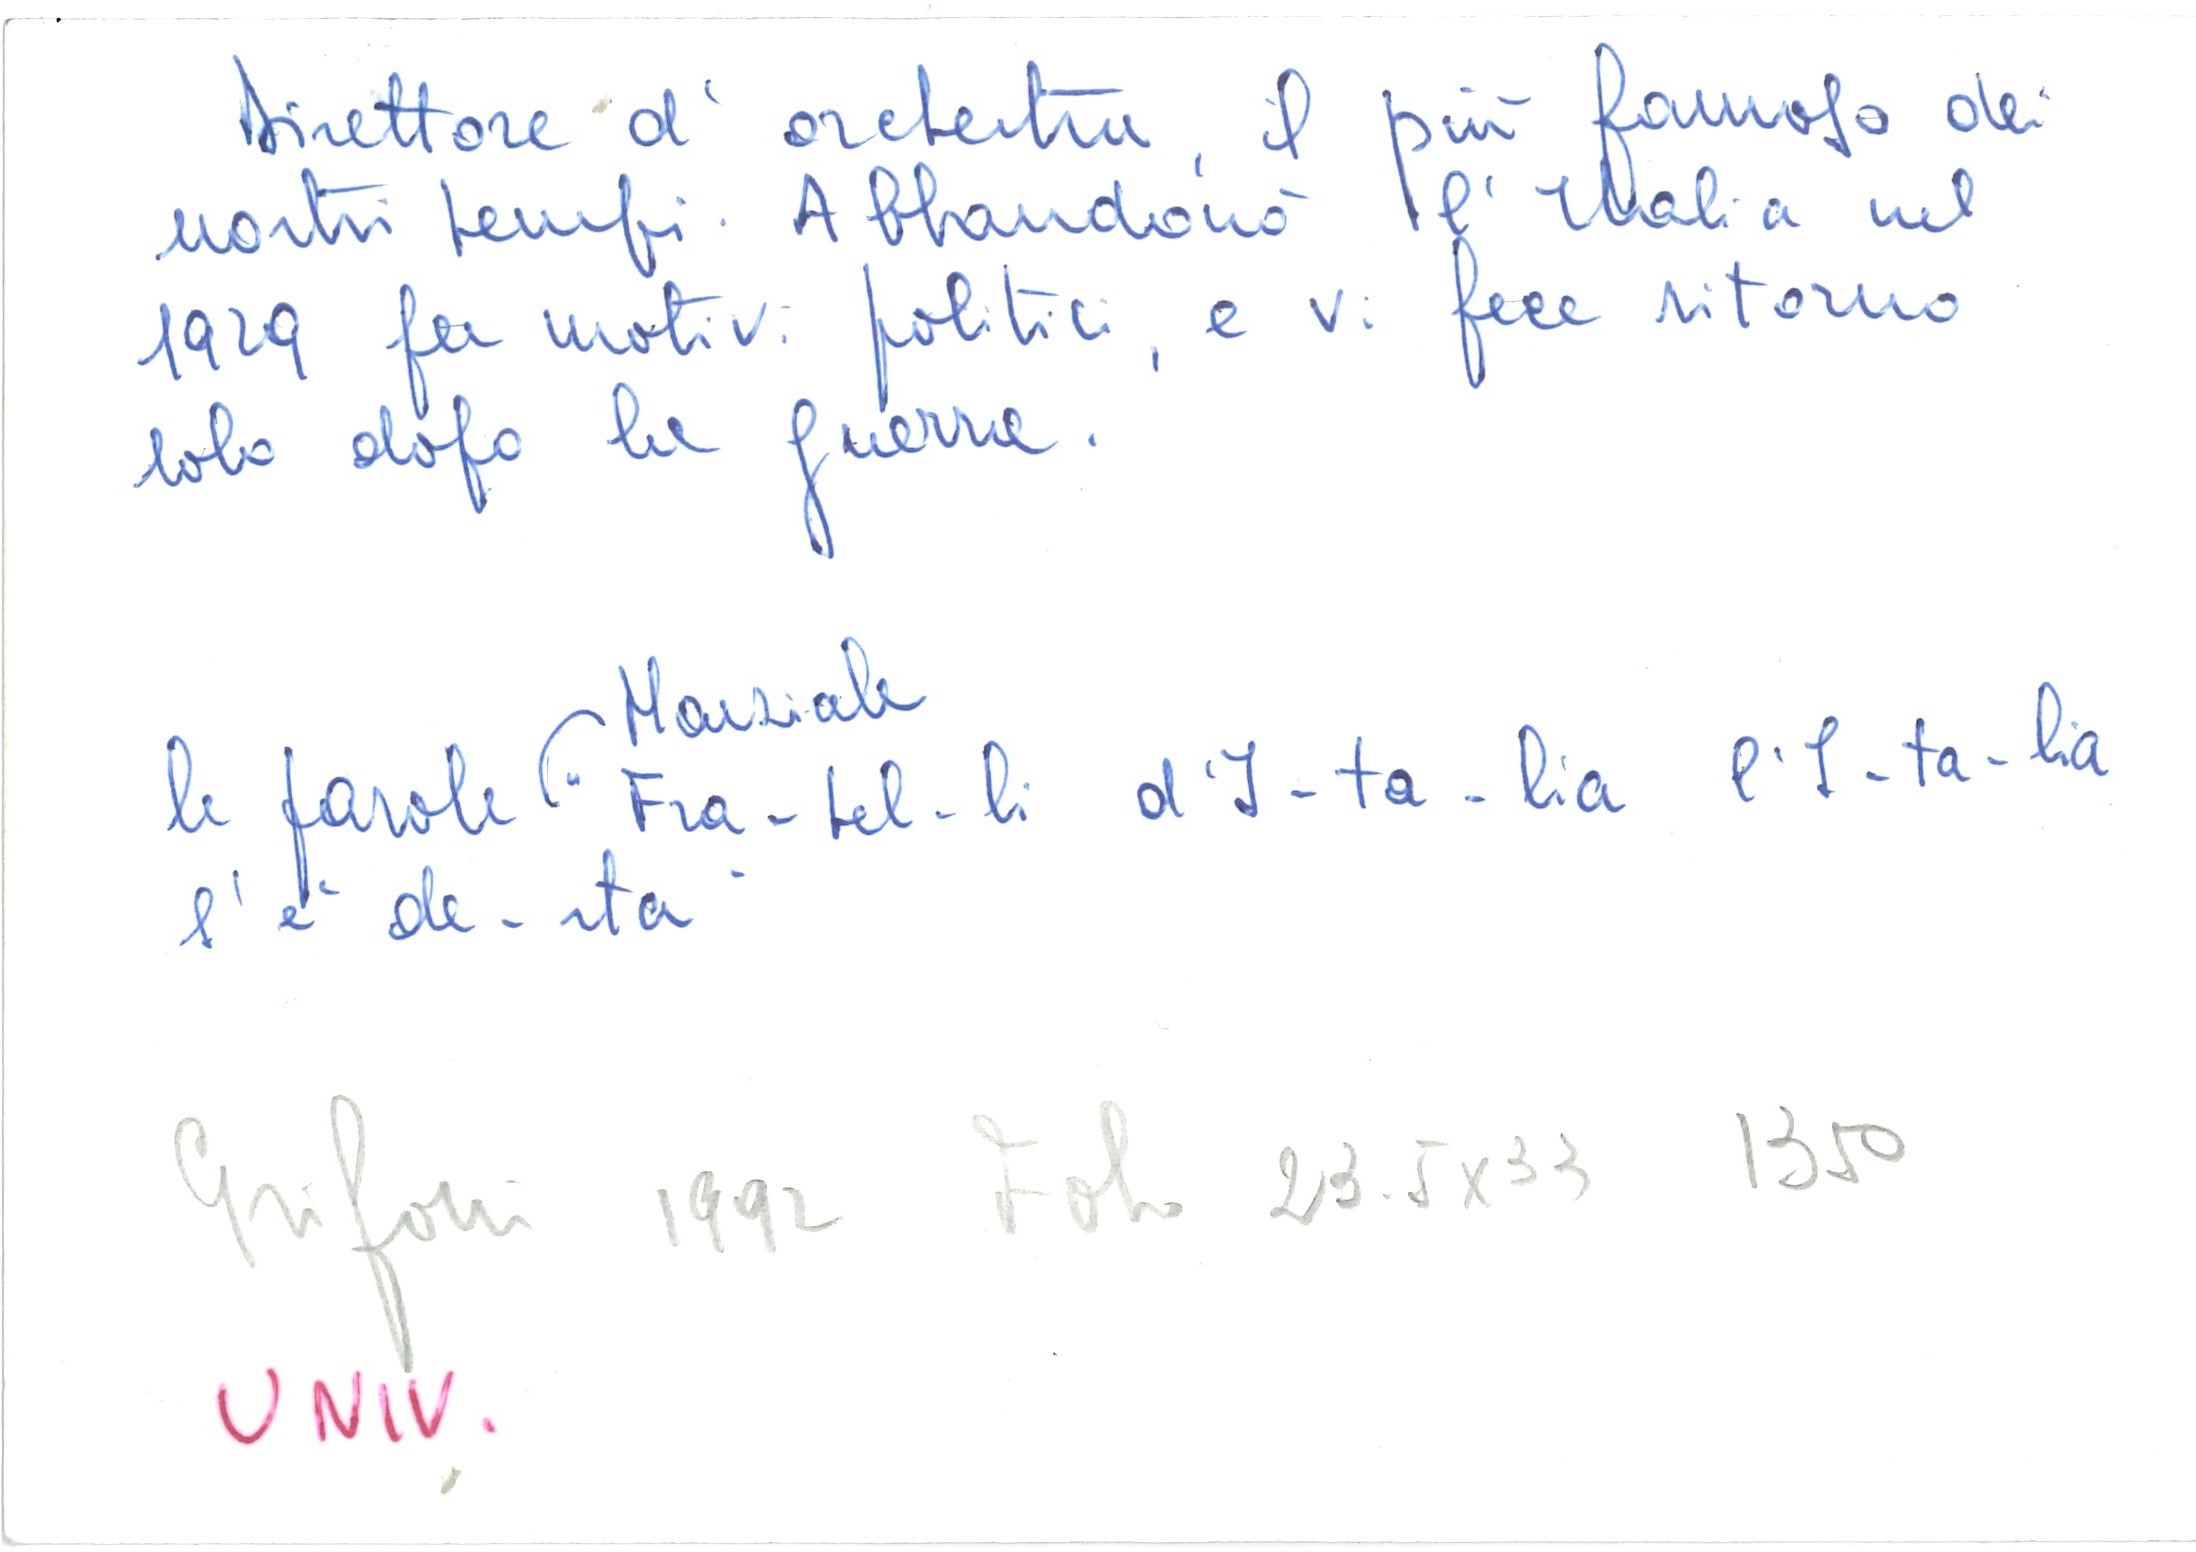 Direttore d'orchestra, il più famoso dei
nostri tempi. Abbandonò l'Italia nel
1929 per motivi politici, e vi fece ritorno
solo dopo la guerra.
Marziale
le parole ( " Fra-tel-li d'I-ta-lia l'I-ta-lia
s'è de-sta"
Grifoni 1992 Foto 23.5x33 1350
UNIV.